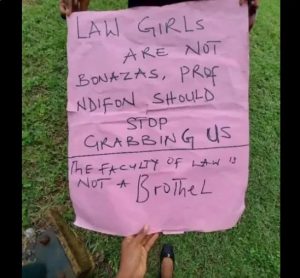 LAW GIRLS
ARE NOT
BONAZAS, PROF
NDIFON SHOULD
STOP
GRABBING US
THE FACULTY OF LAW IS
NOT A BROTHEL